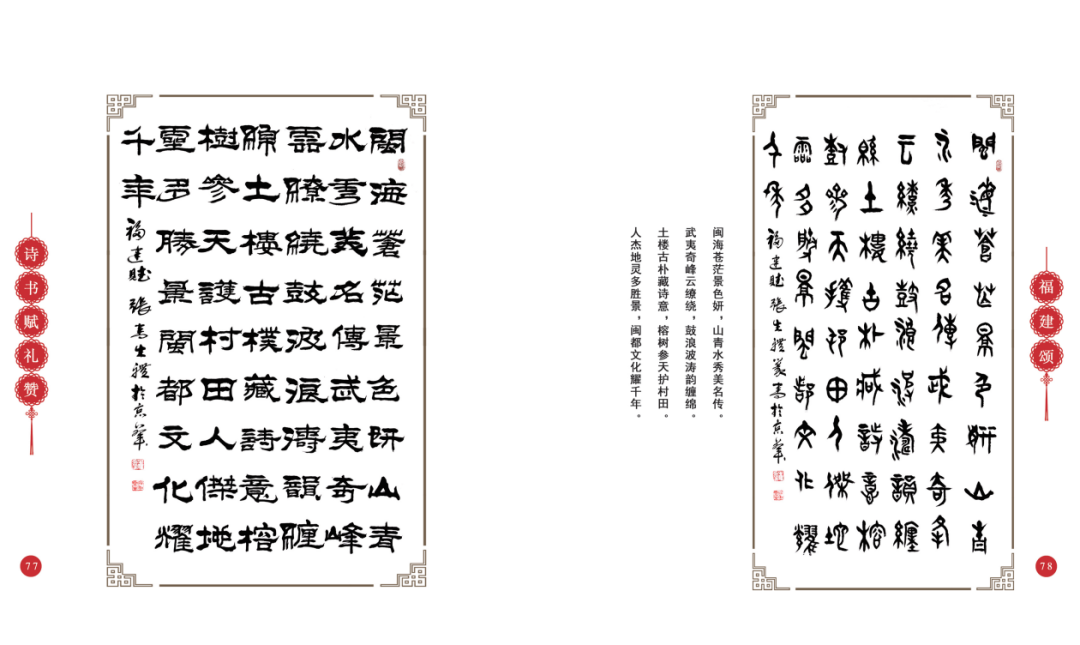 诗书赋礼赞
閩海蒼茫景色妍山青
水秀美名傳武夷奇峰
雲繚繞鼓波浪濤韻纏
綿土樓古樸藏詩意榕
樹參天護村田人傑地
靈多勝景閩都文化耀
千年
福建賦 張生禮於京華
77
福建颂
閩海蒼茫景色妍山青
水秀美名傳武夷奇峰
云繚繞鼓浪波濤韻纏
綿土樓古朴藏詩意榕
樹參天護邨田人傑地
靈多勝景閩都文化耀
千年
福建賦 張生禮篆書於京華
闽海苍茫景色妍，山青水秀美名传。
武夷奇峰云缭绕，鼓浪波涛韵缠绵。
土楼古朴藏诗意，榕树参天护村田。
人杰地灵多胜景，闽都文化耀千年。
78